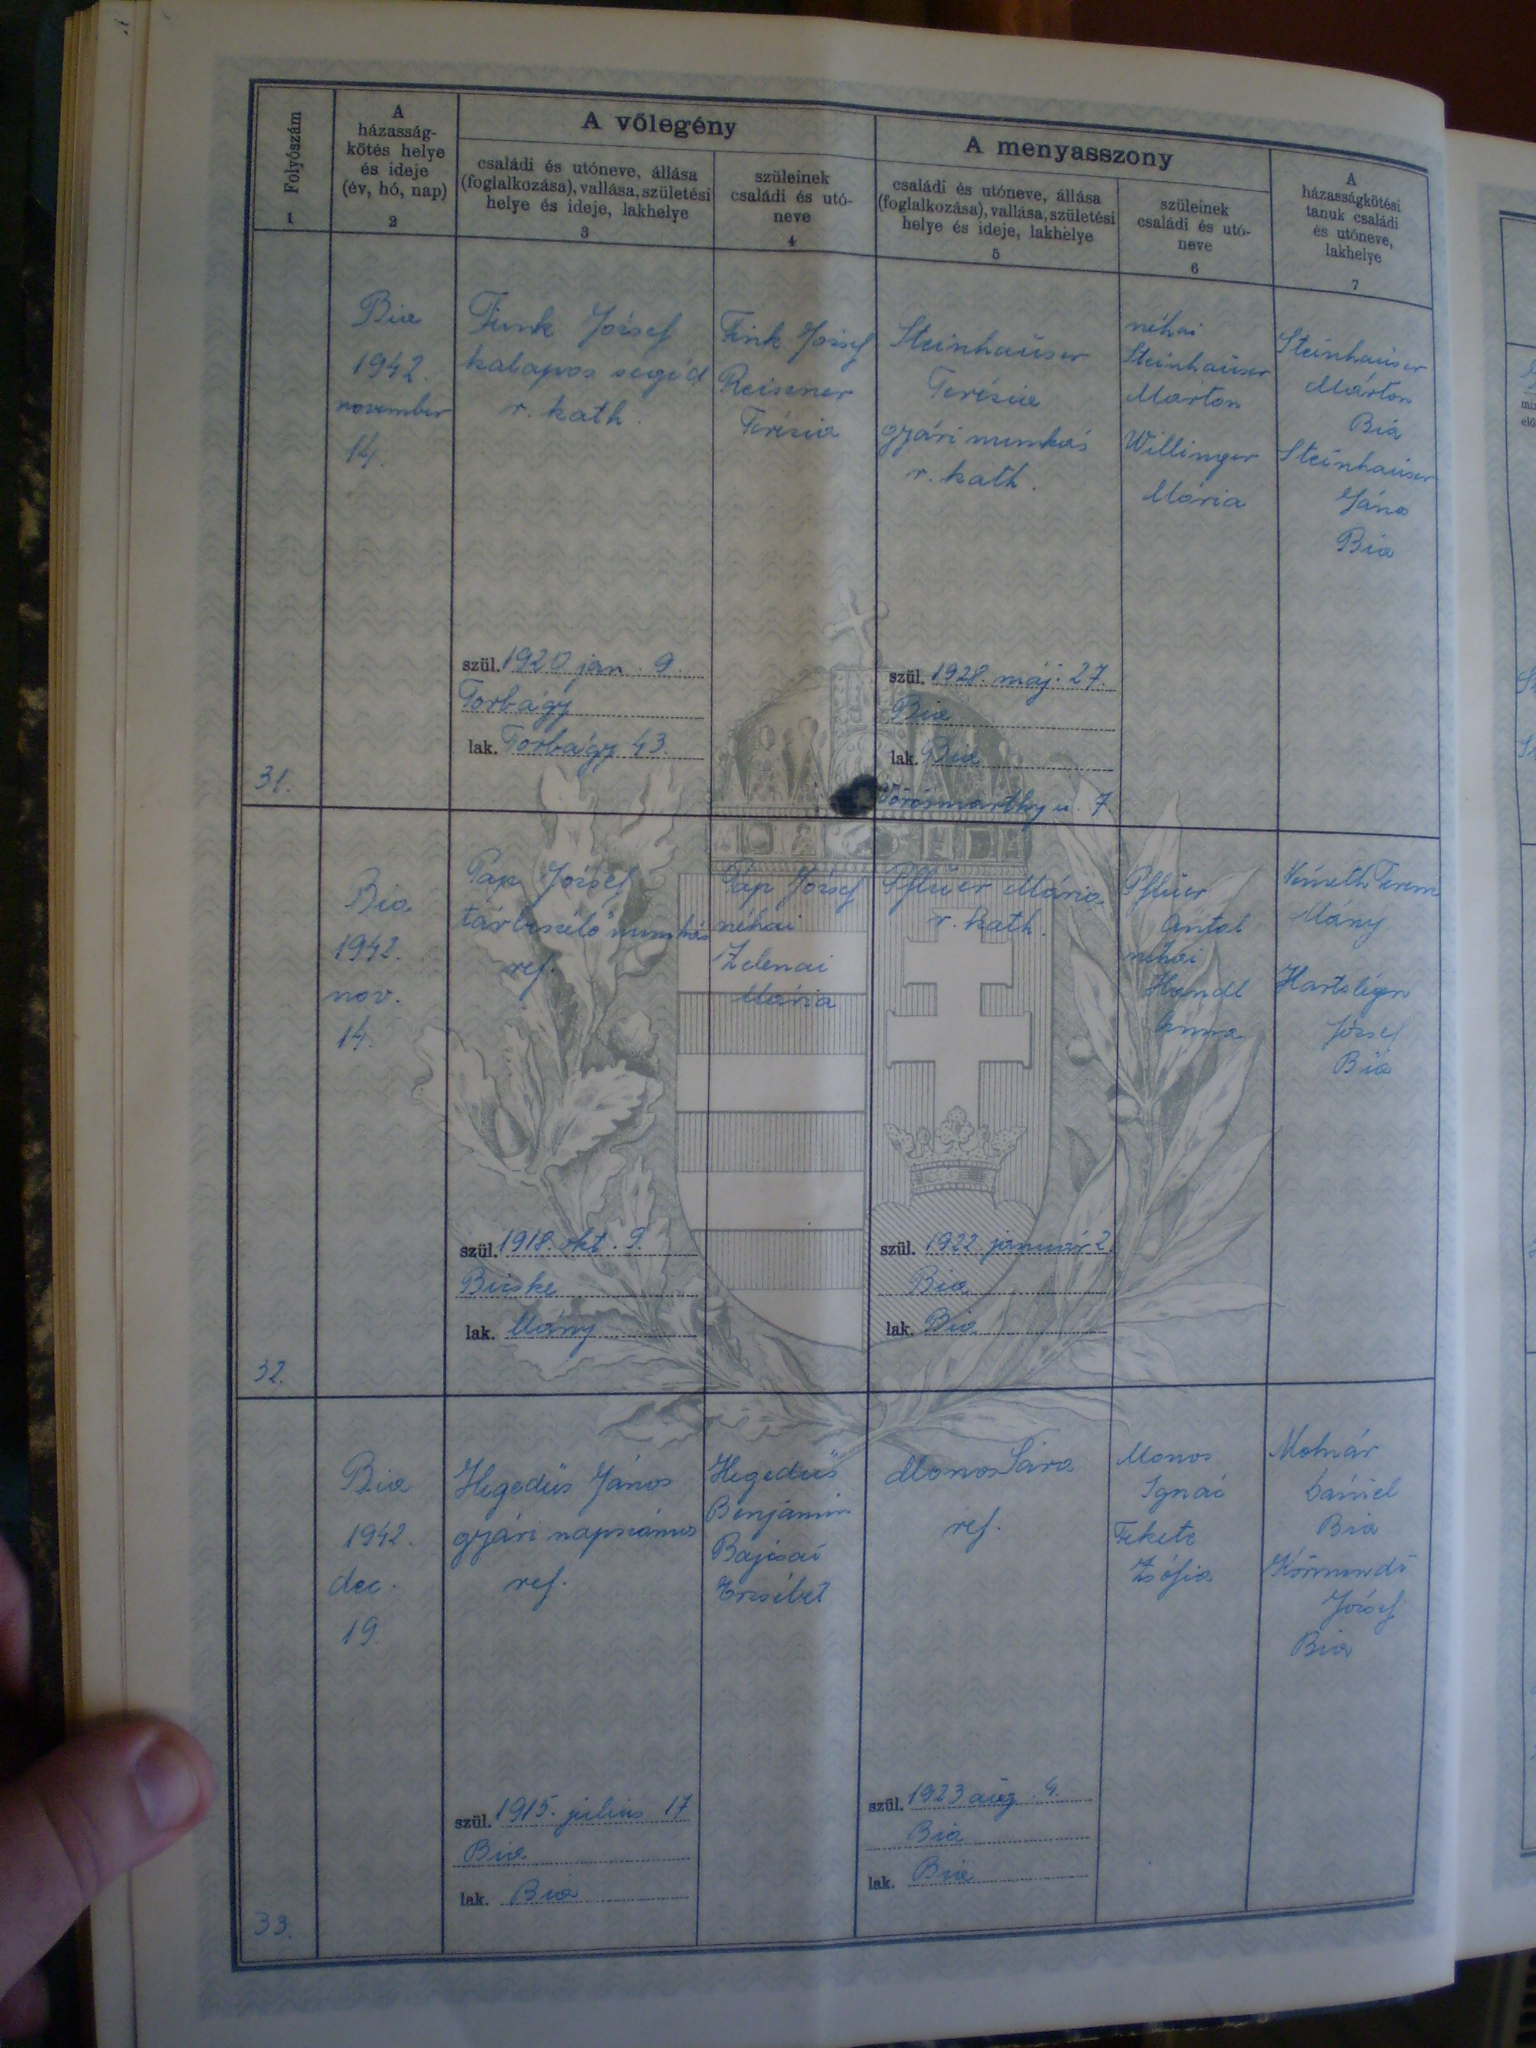 Folyószám
1
A
házasság-
kötés helye
és ideje
(év, hó, nap)
2
A vőlegény
családi és utóneve, állása
(foglalkozása), vallása, születési
helye és ideje, lakhelye
3
szüleinek
családi és utó-
neve
4
A menyasszony
családi és utóneve, állása
(foglalkozása), vallása, születési
helye és ideje, lakhelye
5
szüleinek
családi és utó-
neve
6
A
házasságkötési
tanuk családi
és utóneve,
lakhelye
7
31.
Bia
1942.
november
14.
József
kalapos segéd
r. kath.
szül. 1920 jan. 9.
Torbágy
lak. Torbágy 43.
Fink József
Reisner
Terézia
Steinhauser
Terézia
gyári munkás
r. kath.
szül. 1928. máj. 27.
Bia
lak. Bia
Vörösmarthy u. 7
néhai
Steinhauser
Márton
Willinger
Mária
Steinhauser
Márton
Bia
Steinhauser
János
Bia
32.
Bia
1942.
nov.
14.
Páp József
ref.
szül. 1918. okt. 9.
Bicske
lak. Mány
Páp József
néhai
Zelenai
Mária
Pflüer Mária
r. kath.
szül. 1922 január 2.
Bia
lak. Bia
Pflüer
Antal
néhai
Handl
Anna
Németh Ferenc
Mány
József
Bia
33.
Bia
1942.
dec.
19.
Hegedüs János
gyári napszámos
ref.
szül. 1915. július 17
Bia
lak. Bia
Hegedüs
Benjámin
Bajcsai
Erzsébet
Monos Sára
ref.
szül. 1923 aug. 4.
Bia
lak. Bia
Monos
Ignác
Fekete
Zsófia
Molnár
Dániel
Bia
Körmendi
József
Bia